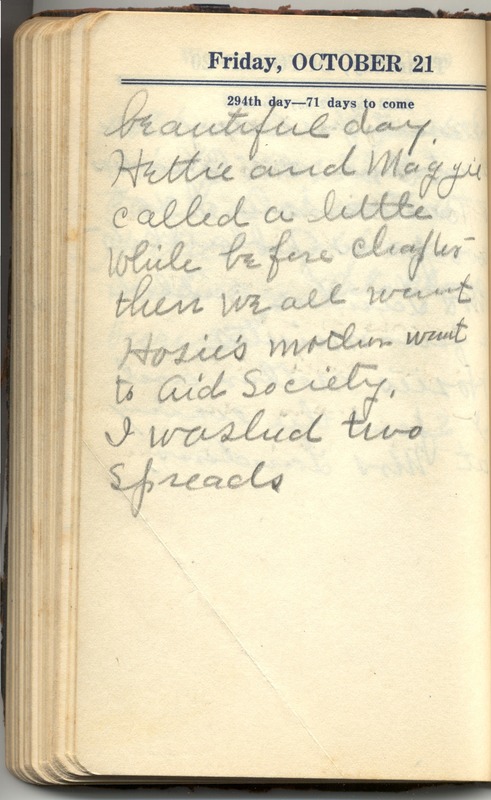 Friday, OCTOBER 21
294th day—71 days to come
beautiful day
Hettie and Maggie
called a little
while before chapter
then we all went
Hosie's mother went
to aid Society,
I washed two
spreads